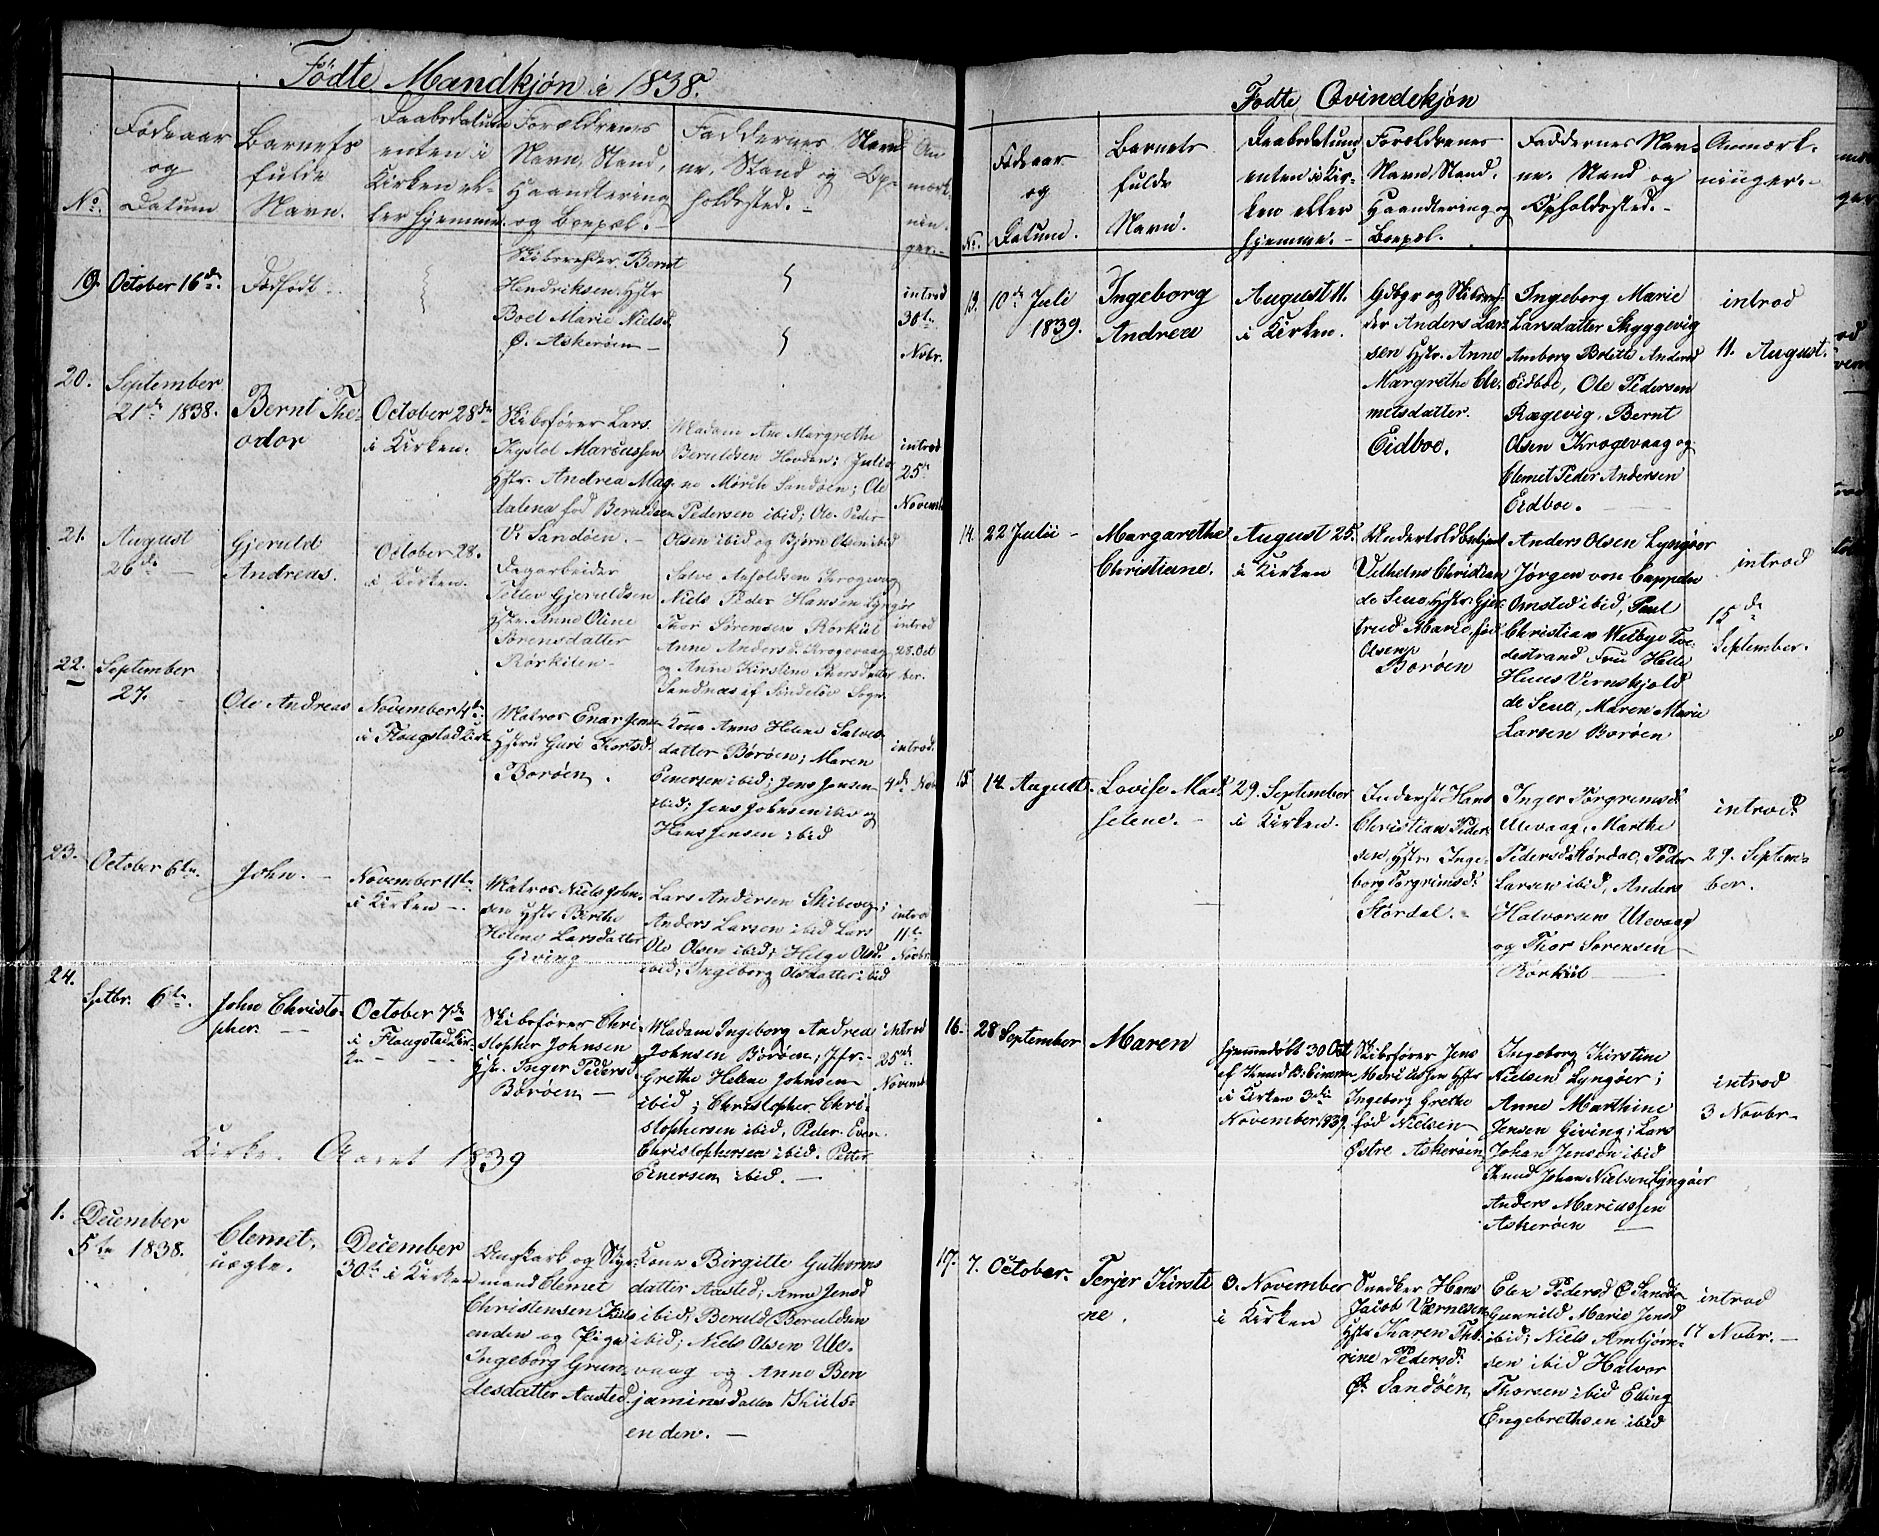 Fødte Mandkjøn i 1838.
No.
Fødeaar
og
Datum
Barnets
fulde
Navn.
Daabsdatum
enten i
Kirken el-
ler hjemme.
Forældrenes
Navn, Stand,
Haandtering
og Boepæl.
Faddernes Navn
ne, Stand og Op-
holdssted.
An
mærk-
nin-
ger.
19. October 16de.
Dødfødt.
Skibsreder Bernt
Hendriksen, Hstr
Boel Marie Nielsd.
Ø. Askerøen
introd
30te
Novbr.
20. September
21de 1838.
Bernt The-
odor
October 28de
i Kirken.
Skibsfører Lars
Kystol Marcussen
Hstr. Andrea Mag-
dalena fød Beruldsen
V. Sandøen.
Madam Ane Margrethe
Beruldsen Hovden; Julia-
ne Mørch Sandøen; Ole
Pedersen ibid; Ole Peder
Olsen ibid og Bjørn Olsen ibid
introd
25de
Novemb
21. August
26de
Gjeruld
Andreas.
October 28.
i Kirken.
Dagarbeider
Tellev Gjeruldsen
Hstr. Anne Oline
Sørensdatter
Rørkilen
Salve Aasoldsen Krogevaag
Niels Peder Hansen Lyngør
Thor Sørensen Rørkiil
Anne Andersd. Krogevaag
og Anne Kirstine Thorsdatter
Sandnæs af Søndeløv Sogn
introd
28. Oct
ber.
22. September
27.
Ole Andreas
November 4de
i Flougstad Kirke
Matros Enar Jensen
Hstru Guri Kortsd.
Borøen.
Kone Anne Helene Salves-
datter Børøen; Maren
Einersen ibid; Jens Jensen
ibid; Jens Johnsen ibid og
Hans Jensen ibid
introd.
4de Nob
23. October 6te.
John.
November 11te
i Kirken
Matros Niels John-
sen Hstr Berthe
Helene Larsdatter
Giving
Lars Andersen Skibevig;
Anders Larsen ibid Lars
Ole Olsen ibid; Helge Olsd.
ibid; Ingeborg Olsdatter ibid
introd
11te
Novbr.
24. Sptbr. 6te.
John Christo-
pher.
October 7de
i Flougstad Kir-
ke
Skibsfører Chri-
stopher Johnsen
Hstr. Inger Pedersd.
Børøen
Madam Ingeborg Andrea
Johnsen Børøen, Jfr.
Grethe Helene Johnsen
ibid; Christopher Chri-
stophersen ibid, Peder Even
Christophersen ibid. Petter
Einersen ibid.
introd
25de
Novemb
Kirke. Aaret 1839
1. December
5te 1838.
Clemet,
uægte.
December
30te i Kirken
Ungkarl og Styr-
mand Clemet
Christensen Kiils-
enden og Pige
Ingeborg Grun-
desdatter Aasted
Kone Birgitte Guthorms
datter Aasted; Anne Jensd
ibid; Beruld Beruldsen
ibid; Niels Olsen Ule-
vaag og Anne Ben
jaminsdatter Kiils-
enden.
Fødte Qvindekjøn
No.
Fødeaar
og
Datum.
Barnets
fulde
Navn.
Daabsdatum
enten i Kir-
ken eller
hjemme.
Forældrenes
Navn, Stand,
Haandtering og
Boepæl.
Faddernes Nav-
ne, Stand og
Opholdssted.
Anmærk-
ninger.
13. 10de Juli
1839.
Ingeborg
Andrea
August 11.
i Kirken.
Gdbgr og Skibsre-
der Anders Lar
sen Hstr. Anne
Margrethe Cle-
metsdatter.
Eidboe.
Ingeborg Marie
Larsdatter Skyggevig
Amborg Bolette Andersd
Eidboe, Ole Pedersen
Rægevig, Bernt
Olsen Krogevaag og
Clemet Peder Andersen
Eidboe.
introd
11. August.
14. 22 Julii
Margarethe
Christiane.
August 25.
i Kirken
Undertoldbetjent
Vilhelm Christian
de Seue, Hstr. Gjer
trud Marie, fød
Olsen
Borøen
Anders Olsen Lyngøer
Jørgen von Cappelen
Omsted ibid, Paul
Christian Welbye Tve-
destrand Fru Helle
Huus Vernskjold
de Seue, Maren Marie
Larsen Borøen
introd
15de
September.
15. 14. August.
Lovise Mad-
selene.
29. September
i Kirken.
Inderst Hans
Christian Peder-
sen, Hstr. Inge-
borg Torgrimsd.
Størdal.
Inger Torgrimsd
Ulevaag, Marthe
Pedersd Størdal, Peder
Larsen ibid, Anders
Halvorsen Ulevaag
og Thor Sørensen
Rørkiil
introd.
29. Septem-
ber.
16. 28 September
Maren
hjemmedøbt 30 Oct
af Knud B. Einersen
i Kirken 3die
November 1839.
Skibsfører Jens
Marcussen Hstr
Ingeborg Grethe
fød Nielsen
Østre Askerøen
Ingeborg Kirstine
Nielsen Lyngøer;
Anne Marthine
Jensen Giving; Lars
Johan Jensen ibid
Knud Johan Nielsen Lyngøer
Anders Marcussen
Askerøen
introd
3 Novbr
17. 7. October.
Terjer Kirsti
ne.
3. November
i Kirken
Snedker Hans
Jacob Værnesen
Hstr Karen Th-
rine Pedersd:
Ø. Sandøen
Elen Pedersd Ø Sandø
Gunnild Marie Jensd
ibid; Niels Arnbjørn-
sen ibid Halvor
Thorsen ibid Elling
Engebrethsen ibid
introd
17 Novbr.